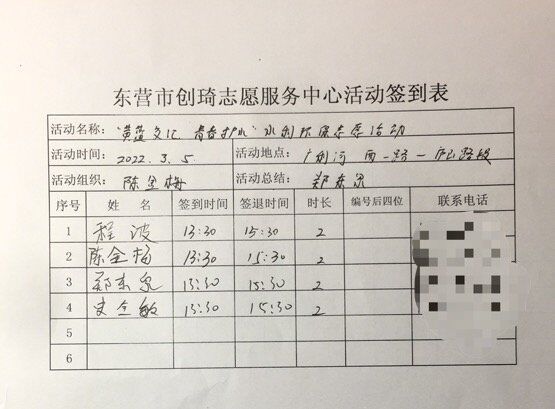 东营市创琦志愿服务中心活动签到表
活动名称: "黄蓝文化 青春护水" 水利环保志愿活动
活动时间: 2022.3.5 活动地点: 广利河 西一路—庐山路段
活动组织: 陈金梅 活动总结:
序号 姓 名 签到时间 签退时间 时长 编号后四位 联系电话
1 程波 13:30 15:30 2
2 陈金梅 13:30 15:30 2
3 13:30 15:30 2
4 13:30 15:30 2
5
6